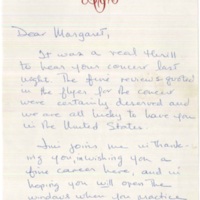 Dear Margaret,
It was a real thrill
to hear your concert last
night. The fine reviews quoted
in the flyer for the concert
were certainly deserved and
we are all lucky to have you
in the United States.
joins me in thank-
ing you, in wishing you a
fine career here, and in
hoping you will open the
windows when you practice